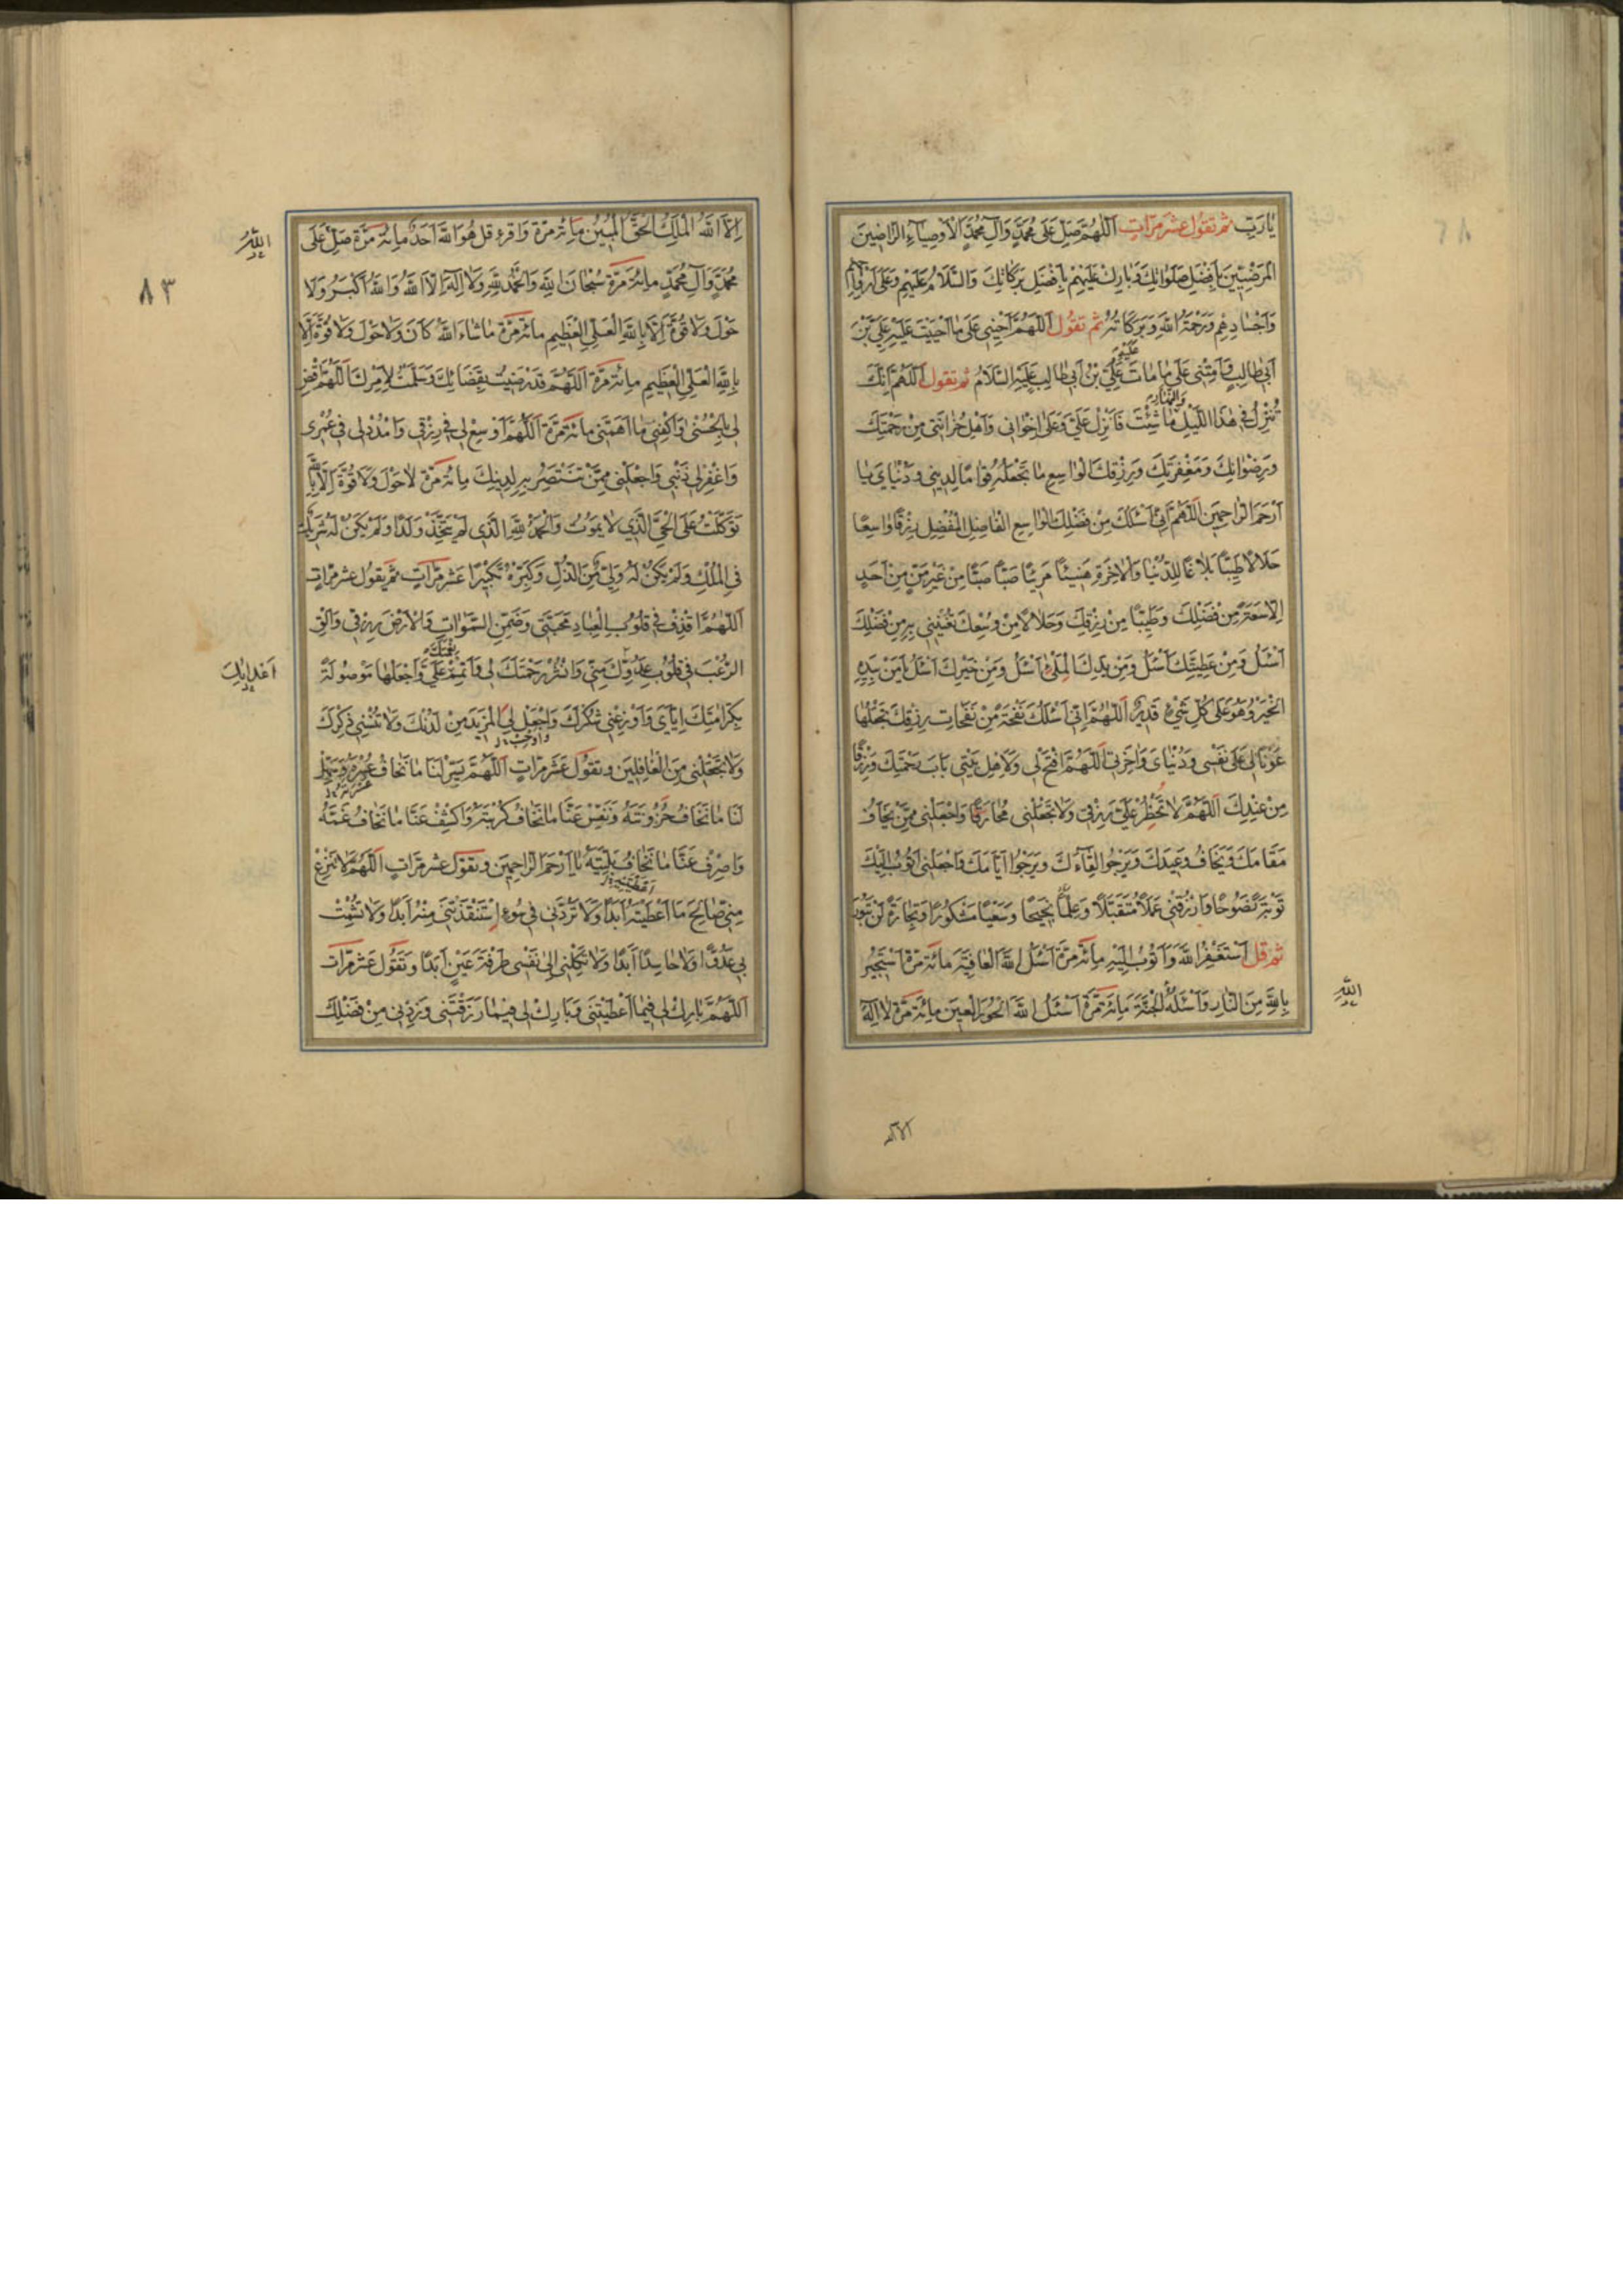 يٰارَبِّ ثم تقول عشر مرّاتٍ اَللّٰهُمَّ صَلِّ عَلىٰ مُحَمَّدٍ وَآلِ مُحَمَّدٍ اَلْاَوْصِيٰآءِ الرّٰاضِينَ
الْمَرْضِيّينَ بِاَفْضَلِ صَلَوٰاتِكَ وَبٰارِكْ عَلَيْهِمْ بِاَفْضَلِ بَرَكٰاتِكَ وَالسَّلٰامُ عَلَيْهِمْ وَعَلىٰ اَرْوٰاحِهِمْ
وَاَجْسٰادِهِمْ وَرَحْمَةُ اللهِ وَبَرَكٰاتُهُ ثم تقول اَللّٰهُمَّ اَحْيِنِى عَلىٰ مٰا اَحْيَيْتَ عَلَيْهِ عَلِيَّ بْنَ
اَبِى طٰالِبٍ وَاَمِتْنِى عَلىٰ مٰا مٰاتَ عَلَيْهِ عَلِيُّ بْنُ اَبِى طٰالِبٍ عَلَيْهِ السَّلٰامُ ثم تقول اَللّٰهُمَّ اِنَّكَ
تُنْزِلُ فِى هٰذَا اللَّيْلِ وَالنَّهٰارِ مٰا شِئْتَ فَاَنْزِلْ عَلَيَّ وَعَلىٰ اِخْوٰانِى وَاَهْلِ حُزٰانَتِى مِنْ رَحْمَتِكَ
وَرِضْوٰانِكَ وَمَغْفِرَتِكَ وَرِزْقِكَ الْوٰاسِعِ مٰا تَجْعَلُهُ قِوٰامًا لِدِينِى وَدُنْيٰايَ يٰا
اَرْحَمَ الرّٰاحِمِينَ اَللّٰهُمَّ اِنِّى اَسْئَلُكَ مِنْ فَضْلِكَ الْوٰاسِعِ الْفٰاضِلِ الْمُفْضِلِ رِزْقًا وٰاسِعًا
حَلٰالًا طَيِّبًا بَلٰاغًا لِلدُّنْيٰا وَالْاٰخِرَةِ هَنِيئًا مَرِيئًا صَبًّا صَبًّا مِنْ غَيْرِ مَنٍّ مِنْ اَحَدٍ
اِلّٰا سَعَةً مِنْ فَضْلِكَ وَطَيِّبًا مِنْ رِزْقِكَ وَحَلٰالًا مِنْ وُسْعِكَ تُغْنِينِى بِهِ مِنْ فَضْلِكَ
اَسْئَلُ وَمِنْ عَطِيَّتِكَ اَسْئَلُ وَمِنْ يَدِكَ الْمَلْئىٰ اَسْئَلُ وَمِنْ خَيْرِكَ اَسْئَلُ يٰا مَنْ بِيَدِهِ
الْخَيْرُ وَهُوَ عَلىٰ كُلِّ شَيْءٍ قَدِيرٌ اَللّٰهُمَّ اِنِّى اَسْئَلُكَ نَفْحَةً مِنْ نَفَحٰاتِ رِزْقِكَ تَجْعَلُهٰا
عَوْنًا لِى عَلىٰ نَفْسِى وَدُنْيٰاىَ وَاٰخِرَتِى اَللّٰهُمَّ افْتَحْ لِى وَلِاَهْلِ بَيْتِى بٰابَ رَحْمَتِكَ وَرِزْقًا
مِنْ عِنْدِكَ اَللّٰهُمَّ لٰا تَحْظُرْ عَلَيَّ رِزْقِى وَلٰا تَجْعَلْنِى مُحٰارَفًا وَاجْعَلْنِى مِمَّنْ يَخٰافُ
مَقٰامَكَ وَيَخٰافُ وَعِيدَكَ وَيَرْجُوا لِقٰاءَكَ وَيَرْجُوا اَيّٰامَكَ وَاجْعَلْنِى اَتُوبُ اِلَيْكَ
تَوْبَةً نَصُوحًا وَارْزُقْنِى عَمَلًا مُتَقَبَّلًا وَعِلْمًا نَجِيحًا وَسَعْيًا مَشْكُورًا وَتِجٰارَةً لَنْ تَبُورَ
ثم قل اَسْتَغْفِرُ اللهَ وَاَتُوبُ اِلَيْهِ مِائَةَ مَرَّةٍ اَسْئَلُ اللهَ الْعٰافِيَةَ مِائَةَ مَرَّةٍ اَسْتَجِيرُ
بِاللهِ مِنَ النّٰارِ وَاَسْئَلُهُ الْجَنَّةَ مِائَةَ مَرَّةٍ اَسْئَلُ اللهَ الْحُورَ الْعِينَ مِائَةَ مَرَّةٍ لٰا اِلٰهَ
اللهَ
اِلَّا اللهُ الْمَلِكُ الْحَقُّ الْمُبِينُ مِائَةَ مَرَّةٍ وَاقرء قل هُوَ اللهُ اَحَدٌ مِائَةَ مَرَّةٍ صَلِّ عَلىٰ
اللهُ
٨٣
مُحَمَّدٍ وَآلِ مُحَمَّدٍ مِائَةَ مَرَّةٍ سُبْحٰانَ اللهِ وَالْحَمْدُ لِلّٰهِ وَلٰا اِلٰهَ اِلَّا اللهُ وَاللهُ اَكْبَرُ وَلٰا
حَوْلَ وَلٰا قُوَّةَ اِلّٰا بِاللهِ الْعَلِيِّ الْعَظِيمِ مِائَةَ مَرَّةٍ مٰا شٰاءَ اللهُ كٰانَ وَلٰا حَوْلَ وَلٰا قُوَّةَ اِلّٰا
بِاللهِ الْعَلِيِّ الْعَظِيمِ مِائَةَ مَرَّةٍ اَللّٰهُمَّ قَدْ رَضِيتُ بِقَضٰائِكَ وَسَلَّمْتُ لِاَمْرِكَ اَللّٰهُمَّ اقْضِ
لِى بِالْحُسْنىٰ وَاكْفِنِى مٰا اَهَمَّنِى مِائَةَ مَرَّةٍ اَللّٰهُمَّ اَوْسِعْ لِى فِى رِزْقِى وَامْدُدْ لِى فِى عُمْرِى
وَاغْفِرْ لِى ذَنْبِى وَاجْعَلْنِى مِمَّنْ تَنْتَصِرُ بِهِ لِدِينِكَ مِائَةَ مَرَّةٍ لٰا حَوْلَ وَلٰا قُوَّةَ اِلّٰا بِاللهِ
تَوَكَّلْتُ عَلَى الْحَيِّ الَّذِى لٰا يَمُوتُ وَالْحَمْدُ لِلّٰهِ الَّذِى لَمْ يَتَّخِذْ وَلَدًا وَلَمْ يَكُنْ لَهُ شَرِيكٌ
فِى الْمُلْكِ وَلَمْ يَكُنْ لَهُ وَلِيٌّ مِنَ الذُّلِّ وَكَبِّرْهُ تَكْبِيرًا عَشْرَ مَرّٰاتٍ ثم تقول عشر مرّاتٍ
اَللّٰهُمَّ اقْذِفْ فِى قُلُوبِ الْعِبٰادِ مَحَبَّتِى وَضَمِّنِ السَّمٰوٰاتِ وَالْاَرْضَ رِزْقِى وَاَلْقِ
الرُّعْبَ فِى قُلُوبِ عَدُوِّكَ مِنِّى وَانْشُرْ رَحْمَتَكَ لِى وَاَتْمِمْ نِعْمَتَكَ عَلَيَّ وَاجْعَلْهٰا مَوْصُولَةً
اَعْدٰائِكَ
بِكَرٰامَتِكَ اِيّٰايَ وَاَوْزِعْنِى شُكْرَكَ وَاَوْجِبْ وَاجْعَلْ لِيَ الْمَزِيدَ مِنْ لَدُنْكَ وَلٰا تُنْسِنِى ذِكْرَكَ
وَلٰا تَجْعَلْنِى مِنَ الْغٰافِلِينَ وتقول عَشْرَ مَرّٰاتٍ اَللّٰهُمَّ يَسِّرْ لَنٰا مٰا نَخٰافُ عُسْرَهُ وَسَهِّلْ
لَنٰا مٰا نَخٰافُ حُزُونَتَهُ وَنَفِّسْ عَنّٰا مٰا نَخٰافُ كُرْبَتَهُ وَاكْشِفْ عَنّٰا مٰا نَخٰافُ غَمَّهُ
وَاصْرِفْ عَنّٰا مٰا نَخٰافُ بَلِيَّتَهُ يٰا اَرْحَمَ الرّٰاحِمِينَ وتقول عشر مرّاتٍ اَللّٰهُمَّ لٰا تَنْزِعْ
مِنِّى صٰالِحَ مٰا اَعْطَيْتَهُ اَبَدًا وَلٰا تَرُدَّنِى فِى سُوءٍ اِسْتَنْقَذْتَنِى مِنْهُ اَبَدًا وَلٰا تُشْمِتْ
بِى عَدُوًّا وَلٰا حٰاسِدًا اَبَدًا وَلٰا تَكِلْنِى اِلىٰ نَفْسِى طَرْفَةَ عَيْنٍ اَبَدًا وَتَقُولُ عَشْرَ مَرّٰات
اَللّٰهُمَّ بٰارِكْ لِى فِيمٰا اَعْطَيْتَنِى وَبٰارِكْ لِى فِيمٰا رَزَقْتَنِى وَزِدْنِى مِنْ فَضْلِكَ